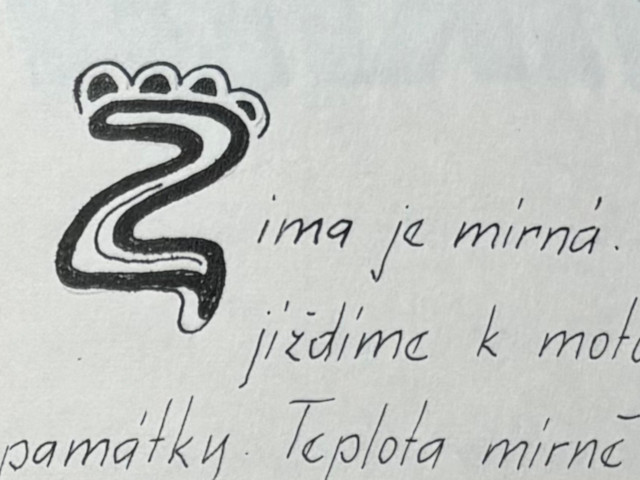 Zima je mírná.
jízdíme k moto
památky. Teplota mírně